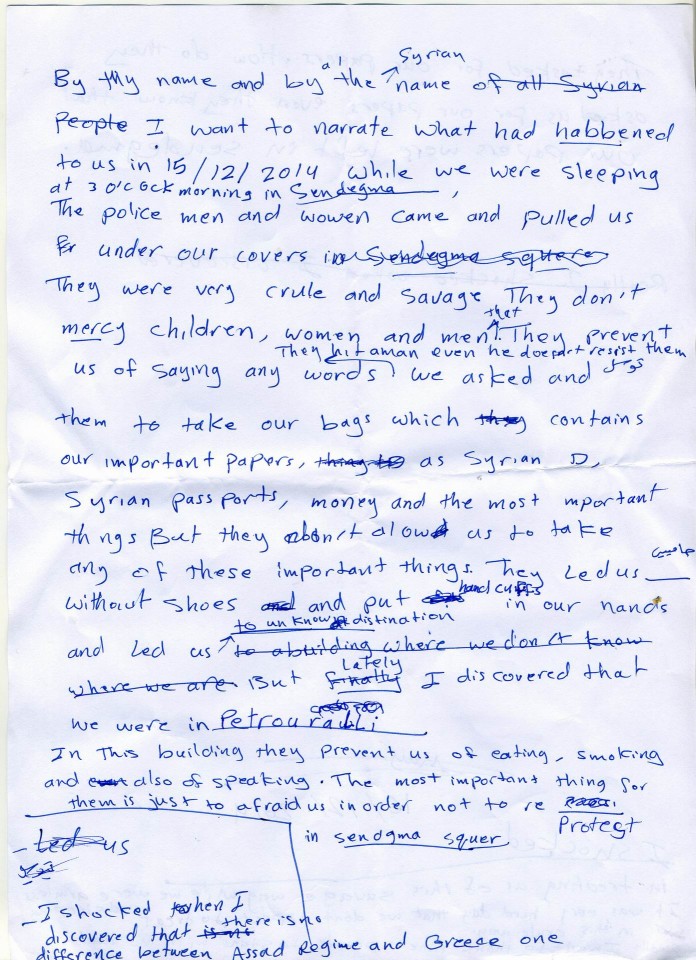 Syrian
By my name and by the name of all Syrian
People I want to narrate what had habbened
to us in 15/12/2014 while we were sleeping
at 3 o'cock morning in Sendegma,
The police men and wowen came and pulled us
under our covers in Sendegma square
They were very crule and savage They don't
that
mercy children, women and men. They prevent
They hit aman even he doesn't resist them
us of saying any words we asked and
them to take our bags which they contains
our important papers, as Syrian D,
Syrian passports, money and the most mportant
things But they don't alowd us to take
any of these important things. They Led us
hand cuffs
without shoes and and put in our hands
to un know distination
and Led us to abuilding where we don't know
Lately
where we are But finally I discovered that
we were in Petrou ralli
In This building they prevent us of eating, smoking
and even also of speaking. The most important thing for
them is just to afraid us in order not to re
Protest
in sendgma squer
- Led us
- I shocked when I
discovered that is no there is no
difference between Assad Regime and Greece one